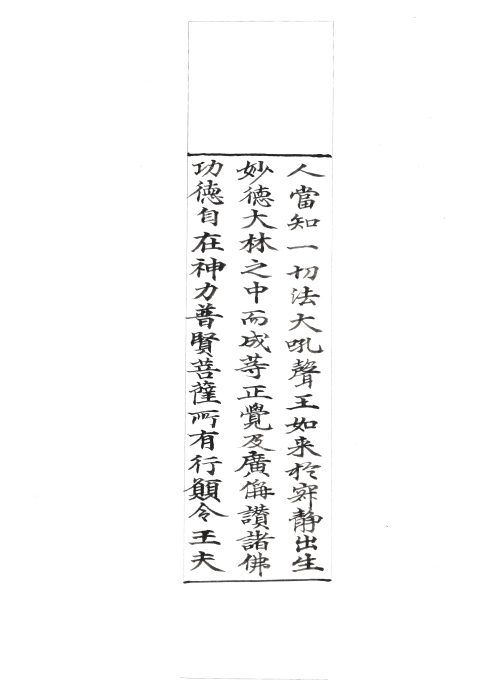 人當知一切法大吼聲王如来於寂静出生
妙德大林之中而成等正覺及廣稱讃諸佛
功德自在神力普賢菩薩所有行願令王夫